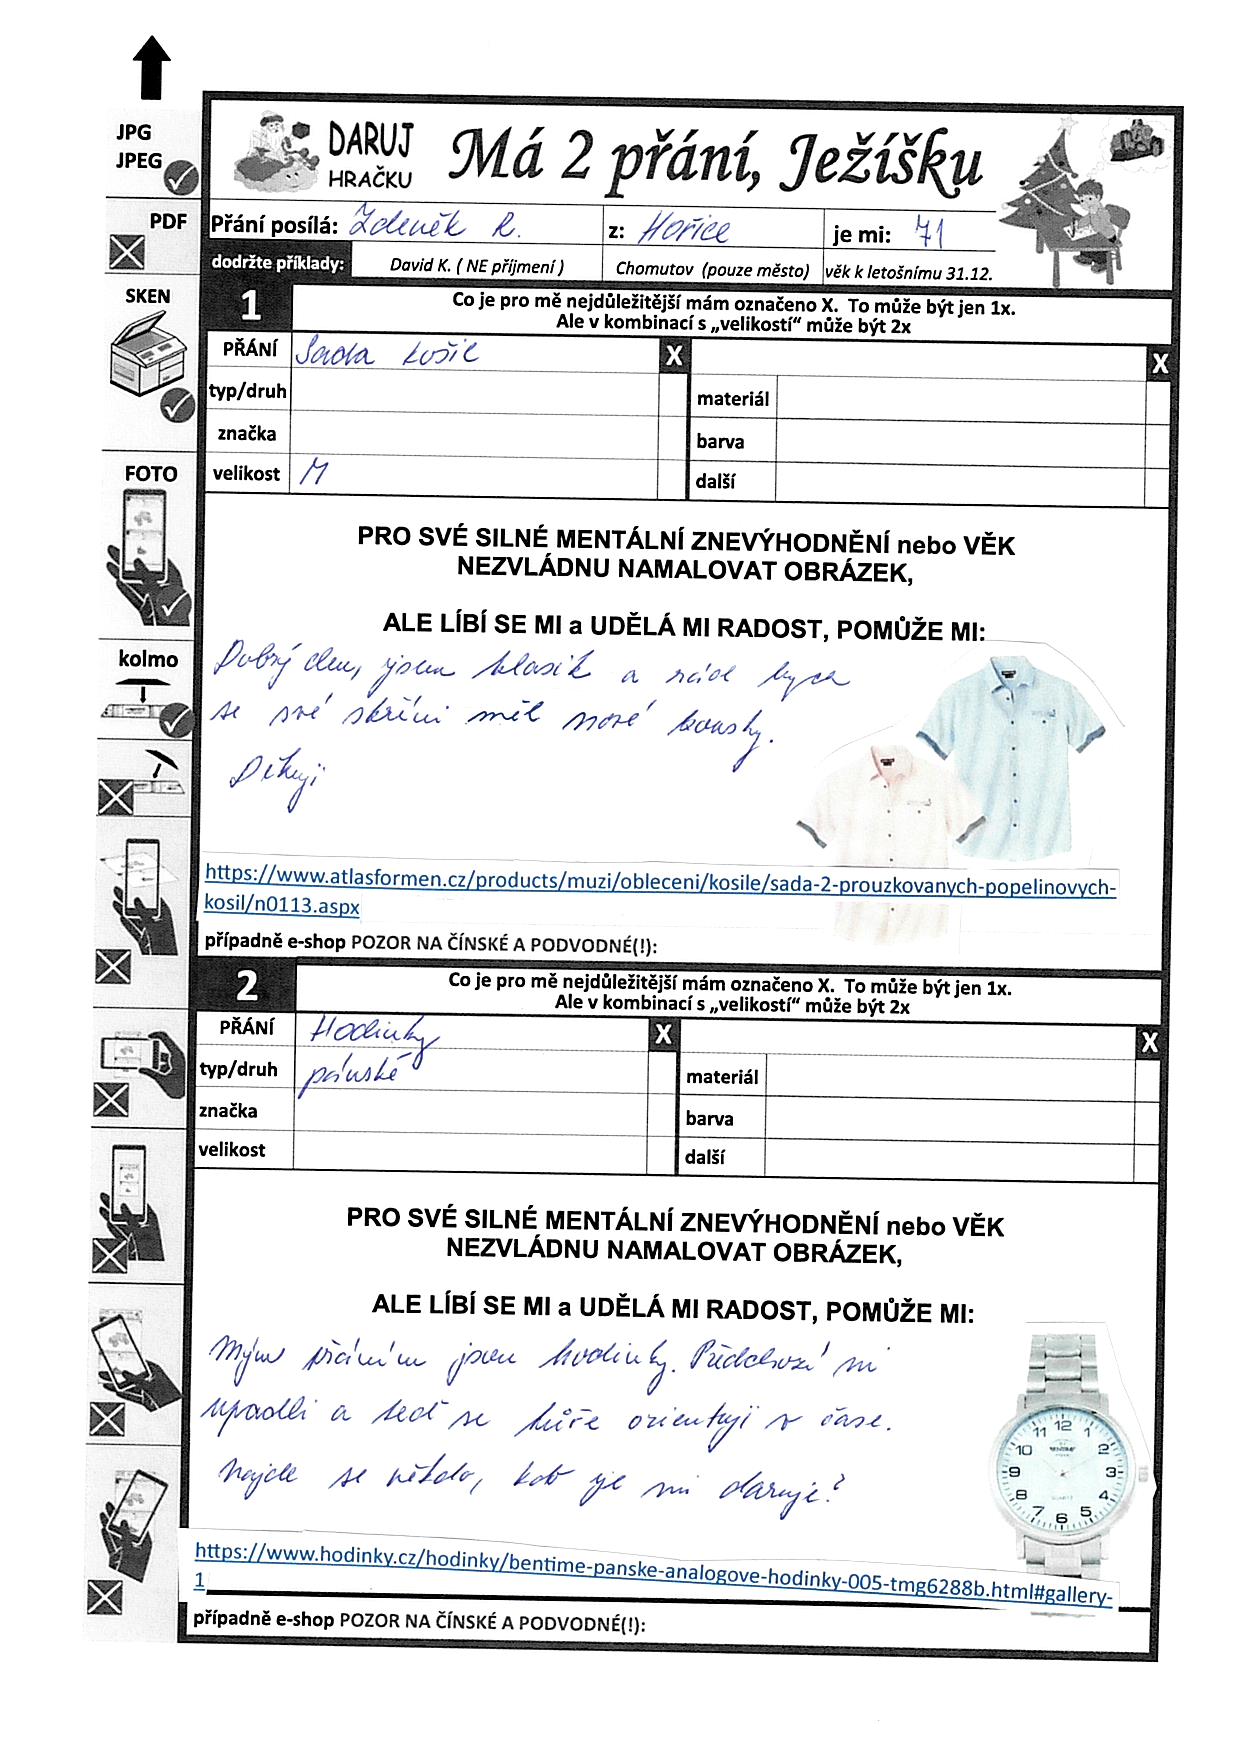 JPG
JPEG
PDF
SKEN
FOTO
kolmo
DARUJ
HRAČKU
Má 2 přání, Ježíšku
Přání posílá: Zdeněk R. z: Hořice je mi: 71
dodržte příklady: David K. ( NE příjmení ) Chomutov (pouze město) věk k letošnímu 31.12.
1
Co je pro mě nejdůležitější mám označeno X. To může být jen 1x.
Ale v kombinací s „velikostí“ může být 2x
PŘÁNÍ Sada košil X X
typ/druh materiál
značka barva
velikost M další
PRO SVÉ SILNÉ MENTÁLNÍ ZNEVÝHODNĚNÍ nebo VĚK
NEZVLÁDNU NAMALOVAT OBRÁZEK,
ALE LÍBÍ SE MI a UDĚLÁ MI RADOST, POMŮŽE MI:
Dobrý den, jsem klasik a rád bych
se své skříni měl nové kousky.
Děkuji
https://www.atlasformen.cz/products/muzi/obleceni/kosile/sada-2-prouzkovanych-popelinovych-
kosil/n0113.aspx
případně e-shop POZOR NA ČÍNSKÉ A PODVODNÉ(!):
2
Co je pro mě nejdůležitější mám označeno X. To může být jen 1x.
Ale v kombinací s „velikostí“ může být 2x
PŘÁNÍ Hodinky X X
typ/druh pánské materiál
značka barva
velikost další
PRO SVÉ SILNÉ MENTÁLNÍ ZNEVÝHODNĚNÍ nebo VĚK
NEZVLÁDNU NAMALOVAT OBRÁZEK,
ALE LÍBÍ SE MI a UDĚLÁ MI RADOST, POMŮŽE MI:
Mým přáním jsou hodinky. Předchozí mi
upadli a teď se hůře orientuji v čase.
Najde se někdo, kdo je mi daruje?
12
11 1
10 2
BENTIME
9 3
QUARTZ
8 4
7 5
6
https://www.hodinky.cz/hodinky/bentime-panske-analogove-hodinky-005-tmg6288b.html#gallery-
1
případně e-shop POZOR NA ČÍNSKÉ A PODVODNÉ(!):